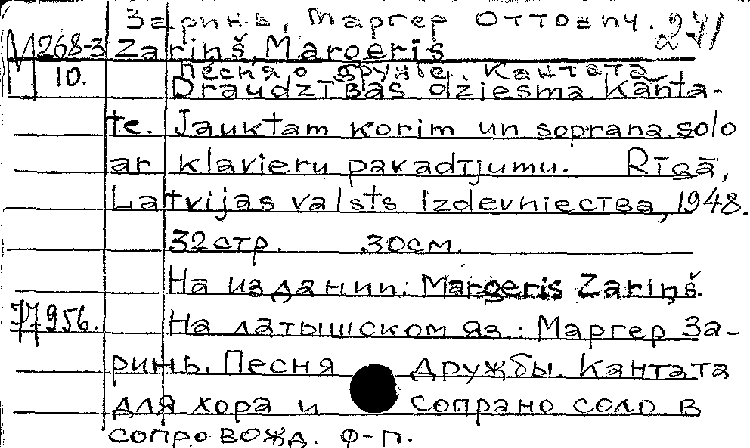 Заринь, Маргер Оттович. 241
М 268-3 Zariņš, Marģeris
10. Песня о дружбе. Кантата
Draudzības dziesma Kanta-
te. Jauktam korim un soprana solo
ar klavieru pavadījumu. Rīgā,
Latvijas valsts Izdevniecтва, 1948.
32 стр. 30 см.
На издании: Marģeris Zariņš.
956. На латышском яз: Маргер За-
ринь. Песня дружбы. Кантата
для хора и сопрано соло в
сопровожд. ф-п.